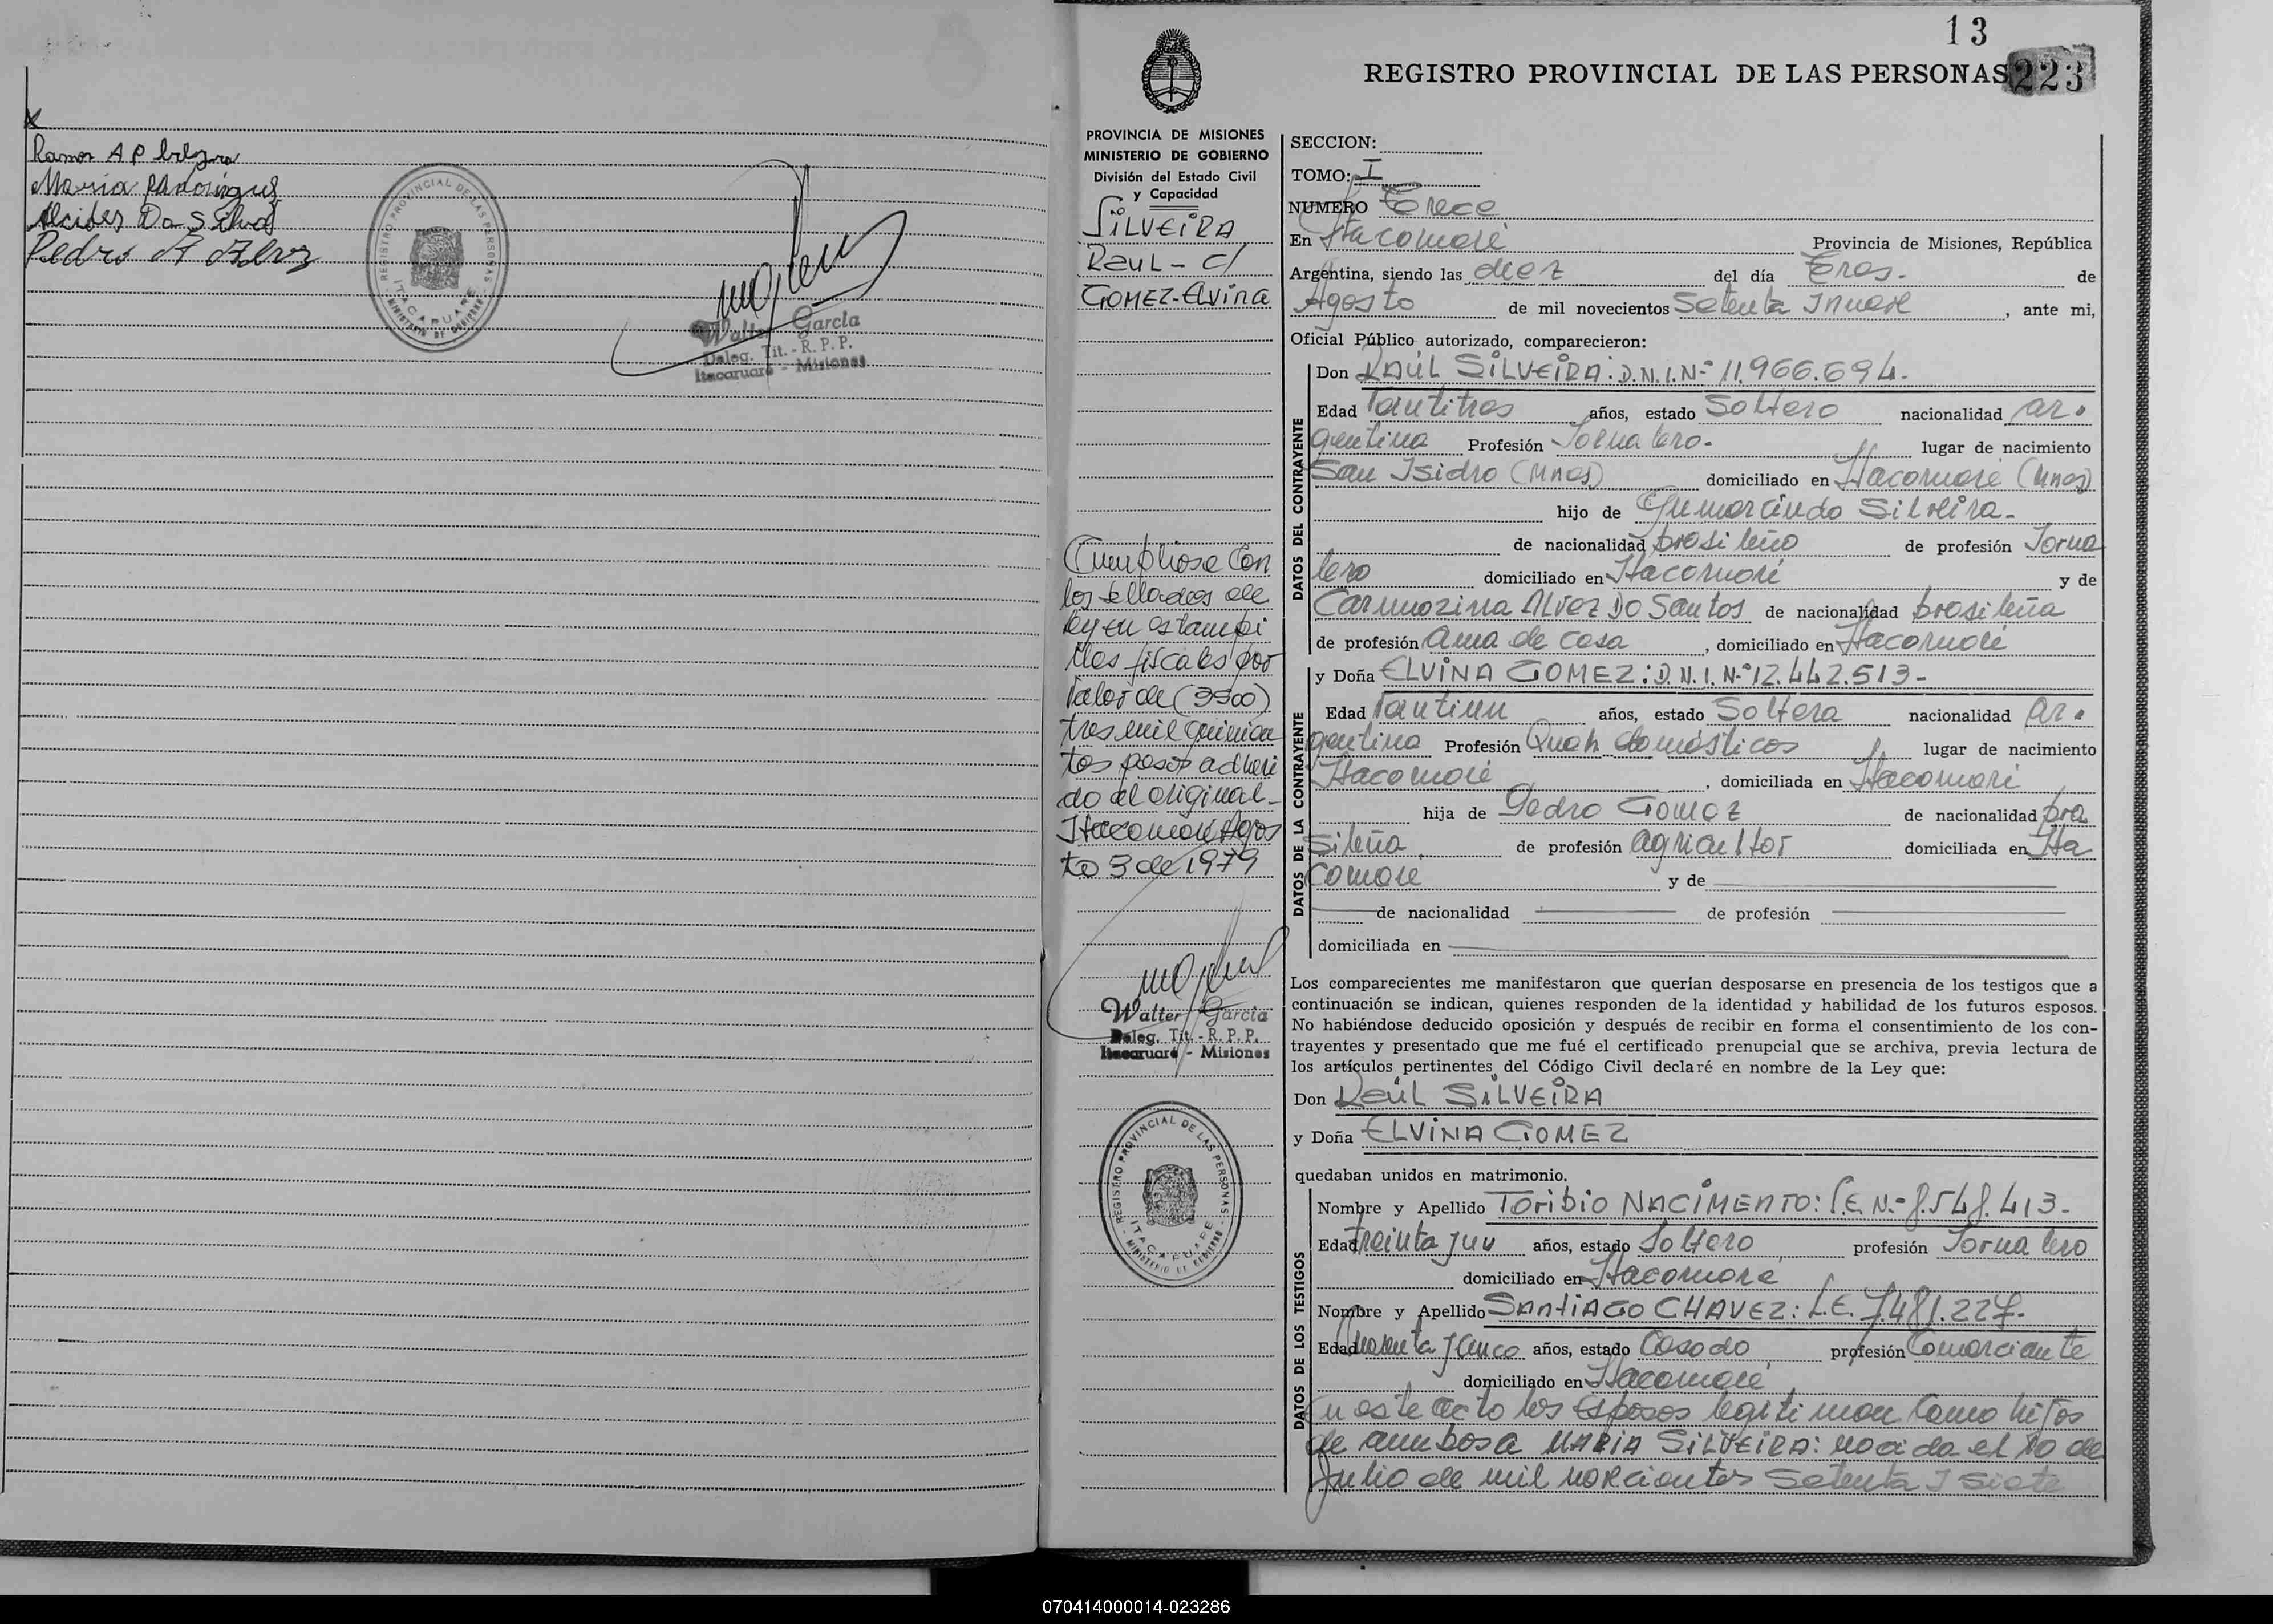 x
Ramon A P
Maria Rodriguez
Alcides Da Silva
Pedro A
REGISTRO PROVINCIAL DE LAS PERSONAS
ITACARUARE
MINISTERIO DE GOBIERNO
Walter Garcia
Deleg. Tit. - R. P. P.
Itacaruaré - Misiones
13
REGISTRO PROVINCIAL DE LAS PERSONAS 223
PROVINCIA DE MISIONES
MINISTERIO DE GOBIERNO
División del Estado Civil
y Capacidad
SILVEIRA
Raul - c/
GOMEZ-Elvina
Cumpliose con
los sellados de
ley en estampi
llas fiscales por
valor de (3500)
tres mil quinien
tos pesos adheri
do al original-
Itacaruaré Agos
to 3 de 1979
Walter Garcia
Deleg. Tit. - R. P. P.
Itacaruaré - Misiones
REGISTRO PROVINCIAL DE LAS PERSONAS
ITACARUARE
MINISTERIO DE GOBIERNO
SECCION:
TOMO: I
NUMERO Trece
En Itacaruaré Provincia de Misiones, República
Argentina, siendo las diez del día Tres. de
Agosto de mil novecientos Setenta Inueve , ante mi,
Oficial Público autorizado, comparecieron:
DATOS DEL CONTRAYENTE
Don RAÚL SILVEIRA: D.N.I.Nº 11.966.694.
Edad Veintitres años, estado Soltero nacionalidad ar-
gentina Profesión Jornalero- lugar de nacimiento
San Isidro (Mnes) domiciliado en Itacaruaré (Mnes)
hijo de Gumercindo Silveira-
de nacionalidad brasileño de profesión Jorna
lero domiciliado en Itacaruaré y de
Carmozina Alvez Do Santos de nacionalidad brasileña
de profesión ama de casa , domiciliado en Itacaruaré
DATOS DE LA CONTRAYENTE
y Doña ELVINA GOMEZ: D.N.I.Nº 12.442.513-
Edad Veintiun años, estado Soltera nacionalidad ar-
gentina Profesión Queh domésticos lugar de nacimiento
Itacaruaré , domiciliada en Itacaruaré
hija de Pedro Gomez de nacionalidad bra
sileña de profesión agricultor domiciliada en Ita
caruare y de
de nacionalidad de profesión
domiciliada en
Los comparecientes me manifestaron que querían desposarse en presencia de los testigos que a
continuación se indican, quienes responden de la identidad y habilidad de los futuros esposos.
No habiéndose deducido oposición y después de recibir en forma el consentimiento de los con-
trayentes y presentado que me fué el certificado prenupcial que se archiva, previa lectura de
los artículos pertinentes del Código Civil declaré en nombre de la Ley que:
Don Raúl SILVEIRA
y Doña ELVINA GOMEZ
quedaban unidos en matrimonio.
DATOS DE LOS TESTIGOS
Nombre y Apellido Toribio NACIMENTO: L.E. Nº 8.548.413-
Edad treinta Jun años, estado Soltero profesión Jornalero
domiciliado en Itacaruaré
Nombre y Apellido SANTIAGO CHAVEZ: L.E. 7.481.227-
Edad Jcinco años, estado Casado profesión Comerciante
domiciliado en Itacaruaré
En este acto los esposos legitiman como hijos
de ambos a MARIA SILVEIRA: nacida el 10 de
Julio de mil novecientos Setenta I Siete
070414000014-023286